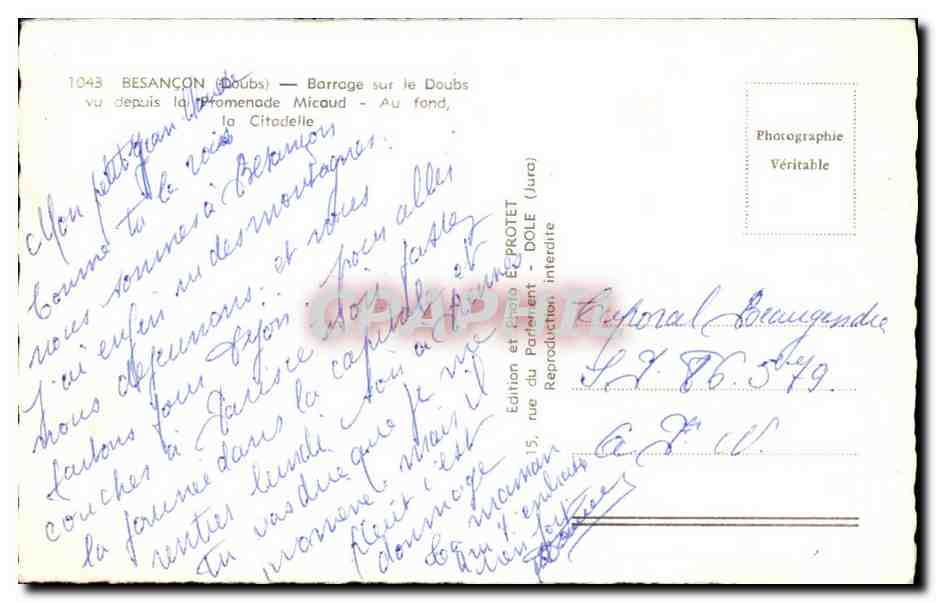 1043 BESANÇON (Doubs) — Barrage sur le Doubs
vu depuis la Promenade Micaud - Au fond,
la Citadelle
Mon petit Jean Claude
Comme tu le vois
nous sommes à Besançon
j'ai enfin vu des montagnes.
nous déjeunons. et nous
partons pour Dijon. pour aller
coucher à
la journée dans la capitale et
rentrer lundi soir à
Tu vas dire que je me
promène, mais il
pleut c'est
dommage
Ta maman
qui t'embrasse
bien fort
Edition et Photo E. PROTET
15, rue du Parlement - DOLE (Jura)
Reproduction interdite
Photographie
Véritable
CPAPHIL
Caporal Beaugendre
S.P. 86.579
A.F.N.